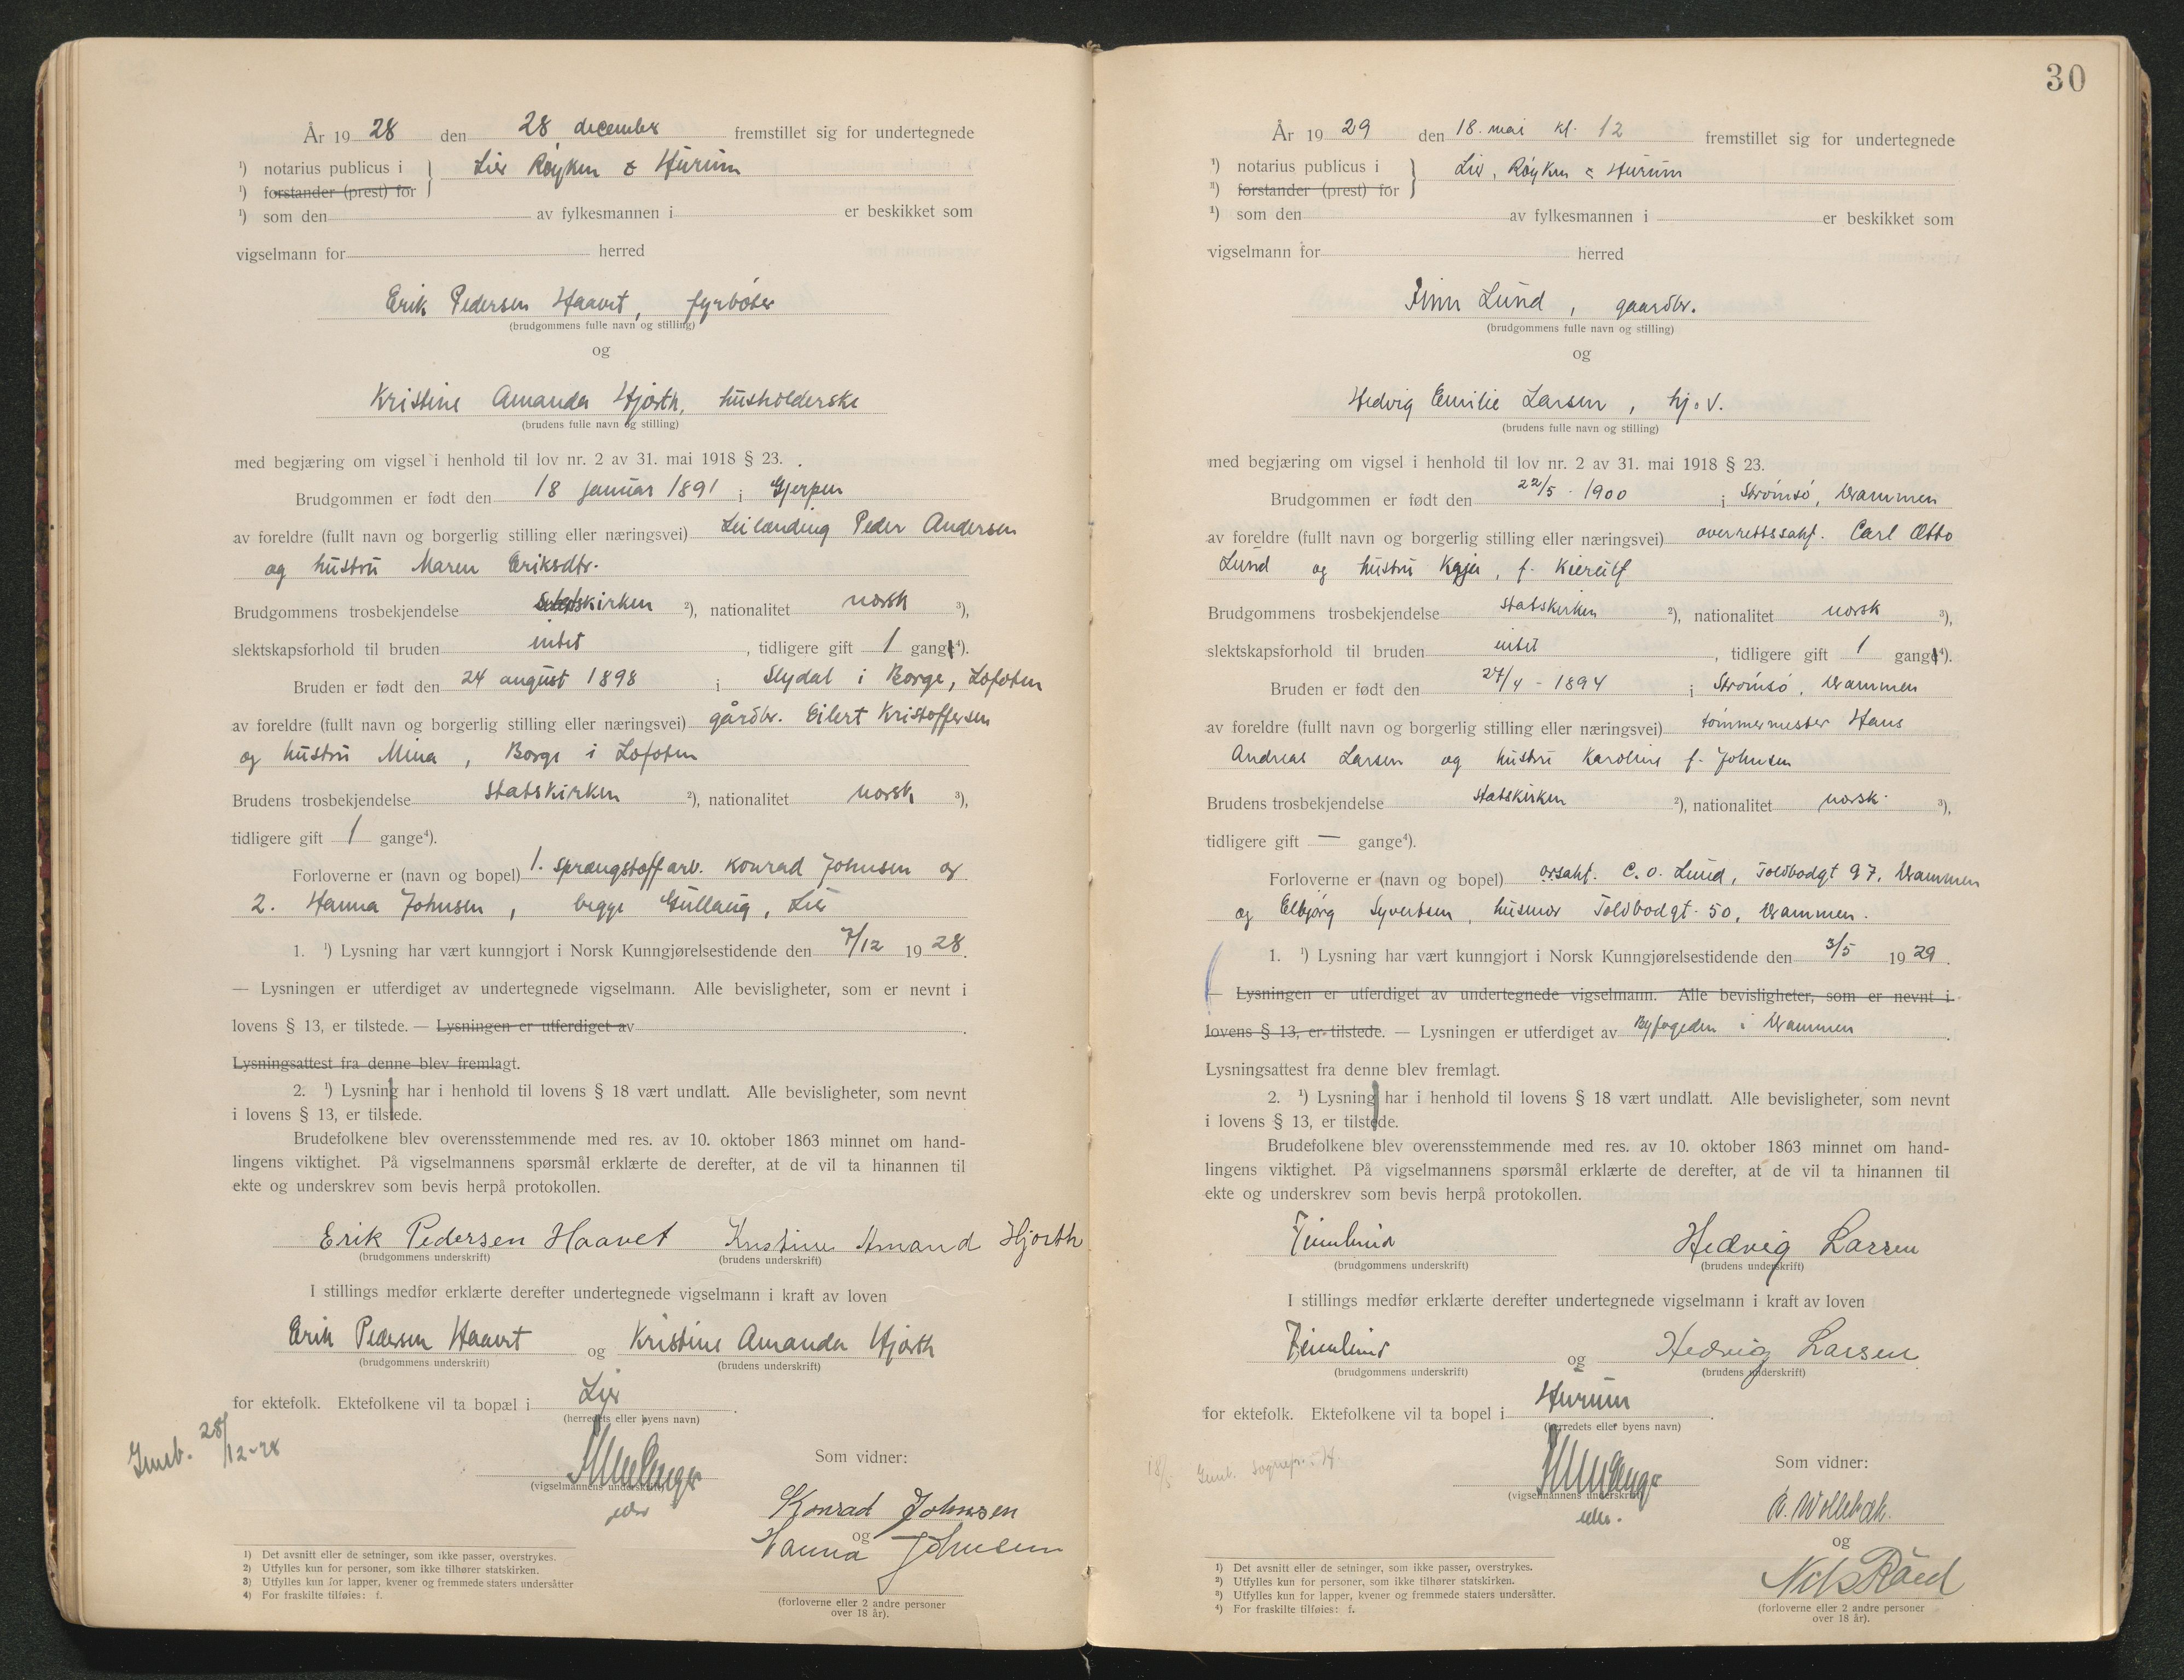 År 19 28 den 28 december fremstillet sig for undertegnede
¹) notarius publicus i } Lier Røyken & Hurum
¹) forstander (prest) for
¹) som den av fylkesmannen i er beskikket som
vigselmann for herred
Erik Pedersen Haavet, fyrbøter
(brudgommens fulle navn og stilling)
og
Kristine Amanda Hjorth, husholderske
(brudens fulle navn og stilling)
med begjæring om vigsel i henhold til lov nr. 2 av 31. mai 1918 § 23.
Brudgommen er født den 18 januar 1891 i Gjerpen
av foreldre (fullt navn og borgerlig stilling eller næringsvei) Leilænding Peder Andersen
og hustru Maren Eriksdtr.
Brudgommens trosbekjendelse statskirken ²), nationalitet norsk ³),
slektskapsforhold til bruden intet, tidligere gift 1 gang⁴).
Bruden er født den 24 august 1898 i Slydal i Borge, Lofoten
av foreldre (fullt navn og borgerlig stilling eller næringsvei) gårdbr. Eilert Kristoffersen
og hustru Mina, Borge i Lofoten
Brudens trosbekjendelse statskirken ²), nationalitet norsk ³),
tidligere gift 1 gange⁴).
Forloverne er (navn og bopel) 1. sprængstoffarb. Konrad Johnsen og
2. Hanna Johnsen, begge Gullaug, Lier
1. ¹) Lysning har vært kunngjort i Norsk Kunngjørelsestidende den 7/12 19 28.
— Lysningen er utferdiget av undertegnede vigselmann. Alle bevisligheter, som er nevnt i
lovens § 13, er tilstede. — Lysningen er utferdiget av .
Lysningsattest fra denne blev fremlagt.
2. ¹) Lysning har i henhold til lovens § 18 vært undlatt. Alle bevisligheter, som nevnt
i lovens § 13, er tilstede.
Brudefolkene blev overensstemmende med res. av 10. oktober 1863 minnet om hand-
lingens viktighet. På vigselmannens spørsmål erklærte de derefter, at de vil ta hinannen til
ekte og underskrev som bevis herpå protokollen.
Erik Pedersen Haavet Kristine Amand Hjorth
(brudgommens underskrift) (brudens underskrift)
I stillings medfør erklærte derefter undertegnede vigselmann i kraft av loven
Erik Pedersen Haavet og Kristine Amanda Hjorth
(brudgommens underskrift) (brudens underskrift)
for ektefolk. Ektefolkene vil ta bopæl i Lier.
(herredets eller byens navn)
28/12-28
Som vidner:
(vigselmannens underskrift)
Konrad Johnsen
og
Hanna Johnsen
(forloverne eller 2 andre personer
over 18 år).
1) Det avsnitt eller de setninger, som ikke passer, overstrykes.
2) Utfylles kun for personer, som ikke tilhører statskirken.
3) Utfylles kun for lapper, kvener og fremmede staters undersåtter
4) For fraskilte tilføies: f.
30
År 19 29 den 18. mai kl. 12 fremstillet sig for undertegnede
¹) notarius publicus i } Lier, Røyken & Hurum
¹) forstander (prest) for
¹) som den av fylkesmannen i er beskikket som
vigselmann for herred
Finn Lund, gaardbr.
(brudgommens fulle navn og stilling)
og
Hedvig Emilie Larsen, hj.v.
(brudens fulle navn og stilling)
med begjæring om vigsel i henhold til lov nr. 2 av 31. mai 1918 § 23.
Brudgommen er født den 22/5 - 1900 i Strømsø, Drammen
av foreldre (fullt navn og borgerlig stilling eller næringsvei) overrettssakf. Carl Otto
Lund og hustru Kaja, f. Kierulf
Brudgommens trosbekjendelse statskirken ²), nationalitet norsk ³),
slektskapsforhold til bruden intet, tidligere gift 1 gang⁴).
Bruden er født den 27/4 - 1894 i Strømsø, Drammen
av foreldre (fullt navn og borgerlig stilling eller næringsvei) tømmermester Hans
Andreas Larsen og hustru Karoline f. Johnsen
Brudens trosbekjendelse statskirken ²), nationalitet norsk ³),
tidligere gift — gange⁴).
Forloverne er (navn og bopel) orsakf. C. O. Lund, Toldbodgt 97, Drammen
og Elbjørg Syvertsen, husmor Toldbodgt. 50, Drammen.
1. ¹) Lysning har vært kunngjort i Norsk Kunngjørelsestidende den 3/5 19 29.
— Lysningen er utferdiget av undertegnede vigselmann. Alle bevisligheter, som er nevnt i
lovens § 13, er tilstede. — Lysningen er utferdiget av Byfogeden i Drammen.
Lysningsattest fra denne blev fremlagt.
2. ¹) Lysning har i henhold til lovens § 18 vært undlatt. Alle bevisligheter, som nevnt
i lovens § 13, er tilstede.
Brudefolkene blev overensstemmende med res. av 10. oktober 1863 minnet om hand-
lingens viktighet. På vigselmannens spørsmål erklærte de derefter, at de vil ta hinannen til
ekte og underskrev som bevis herpå protokollen.
Finn Lund Hedvig Larsen
(brudgommens underskrift) (brudens underskrift)
I stillings medfør erklærte derefter undertegnede vigselmann i kraft av loven
Finn Lund og Hedvig Larsen
(brudgommens underskrift) (brudens underskrift)
for ektefolk. Ektefolkene vil ta bopel i Hurum.
(herredets eller byens navn)
Som vidner:
(vigselmannens underskrift)
Wollebæk.
og
(forloverne eller 2 andre personer
over 18 år).
¹) Det avsnitt eller de setninger, som ikke passer, overstrykes.
²) Utfylles kun for personer, som ikke tilhører statskirken.
³) Utfylles kun for lapper, kvener og fremmede staters undersåtter.
⁴) For fraskilte tilføies: f.